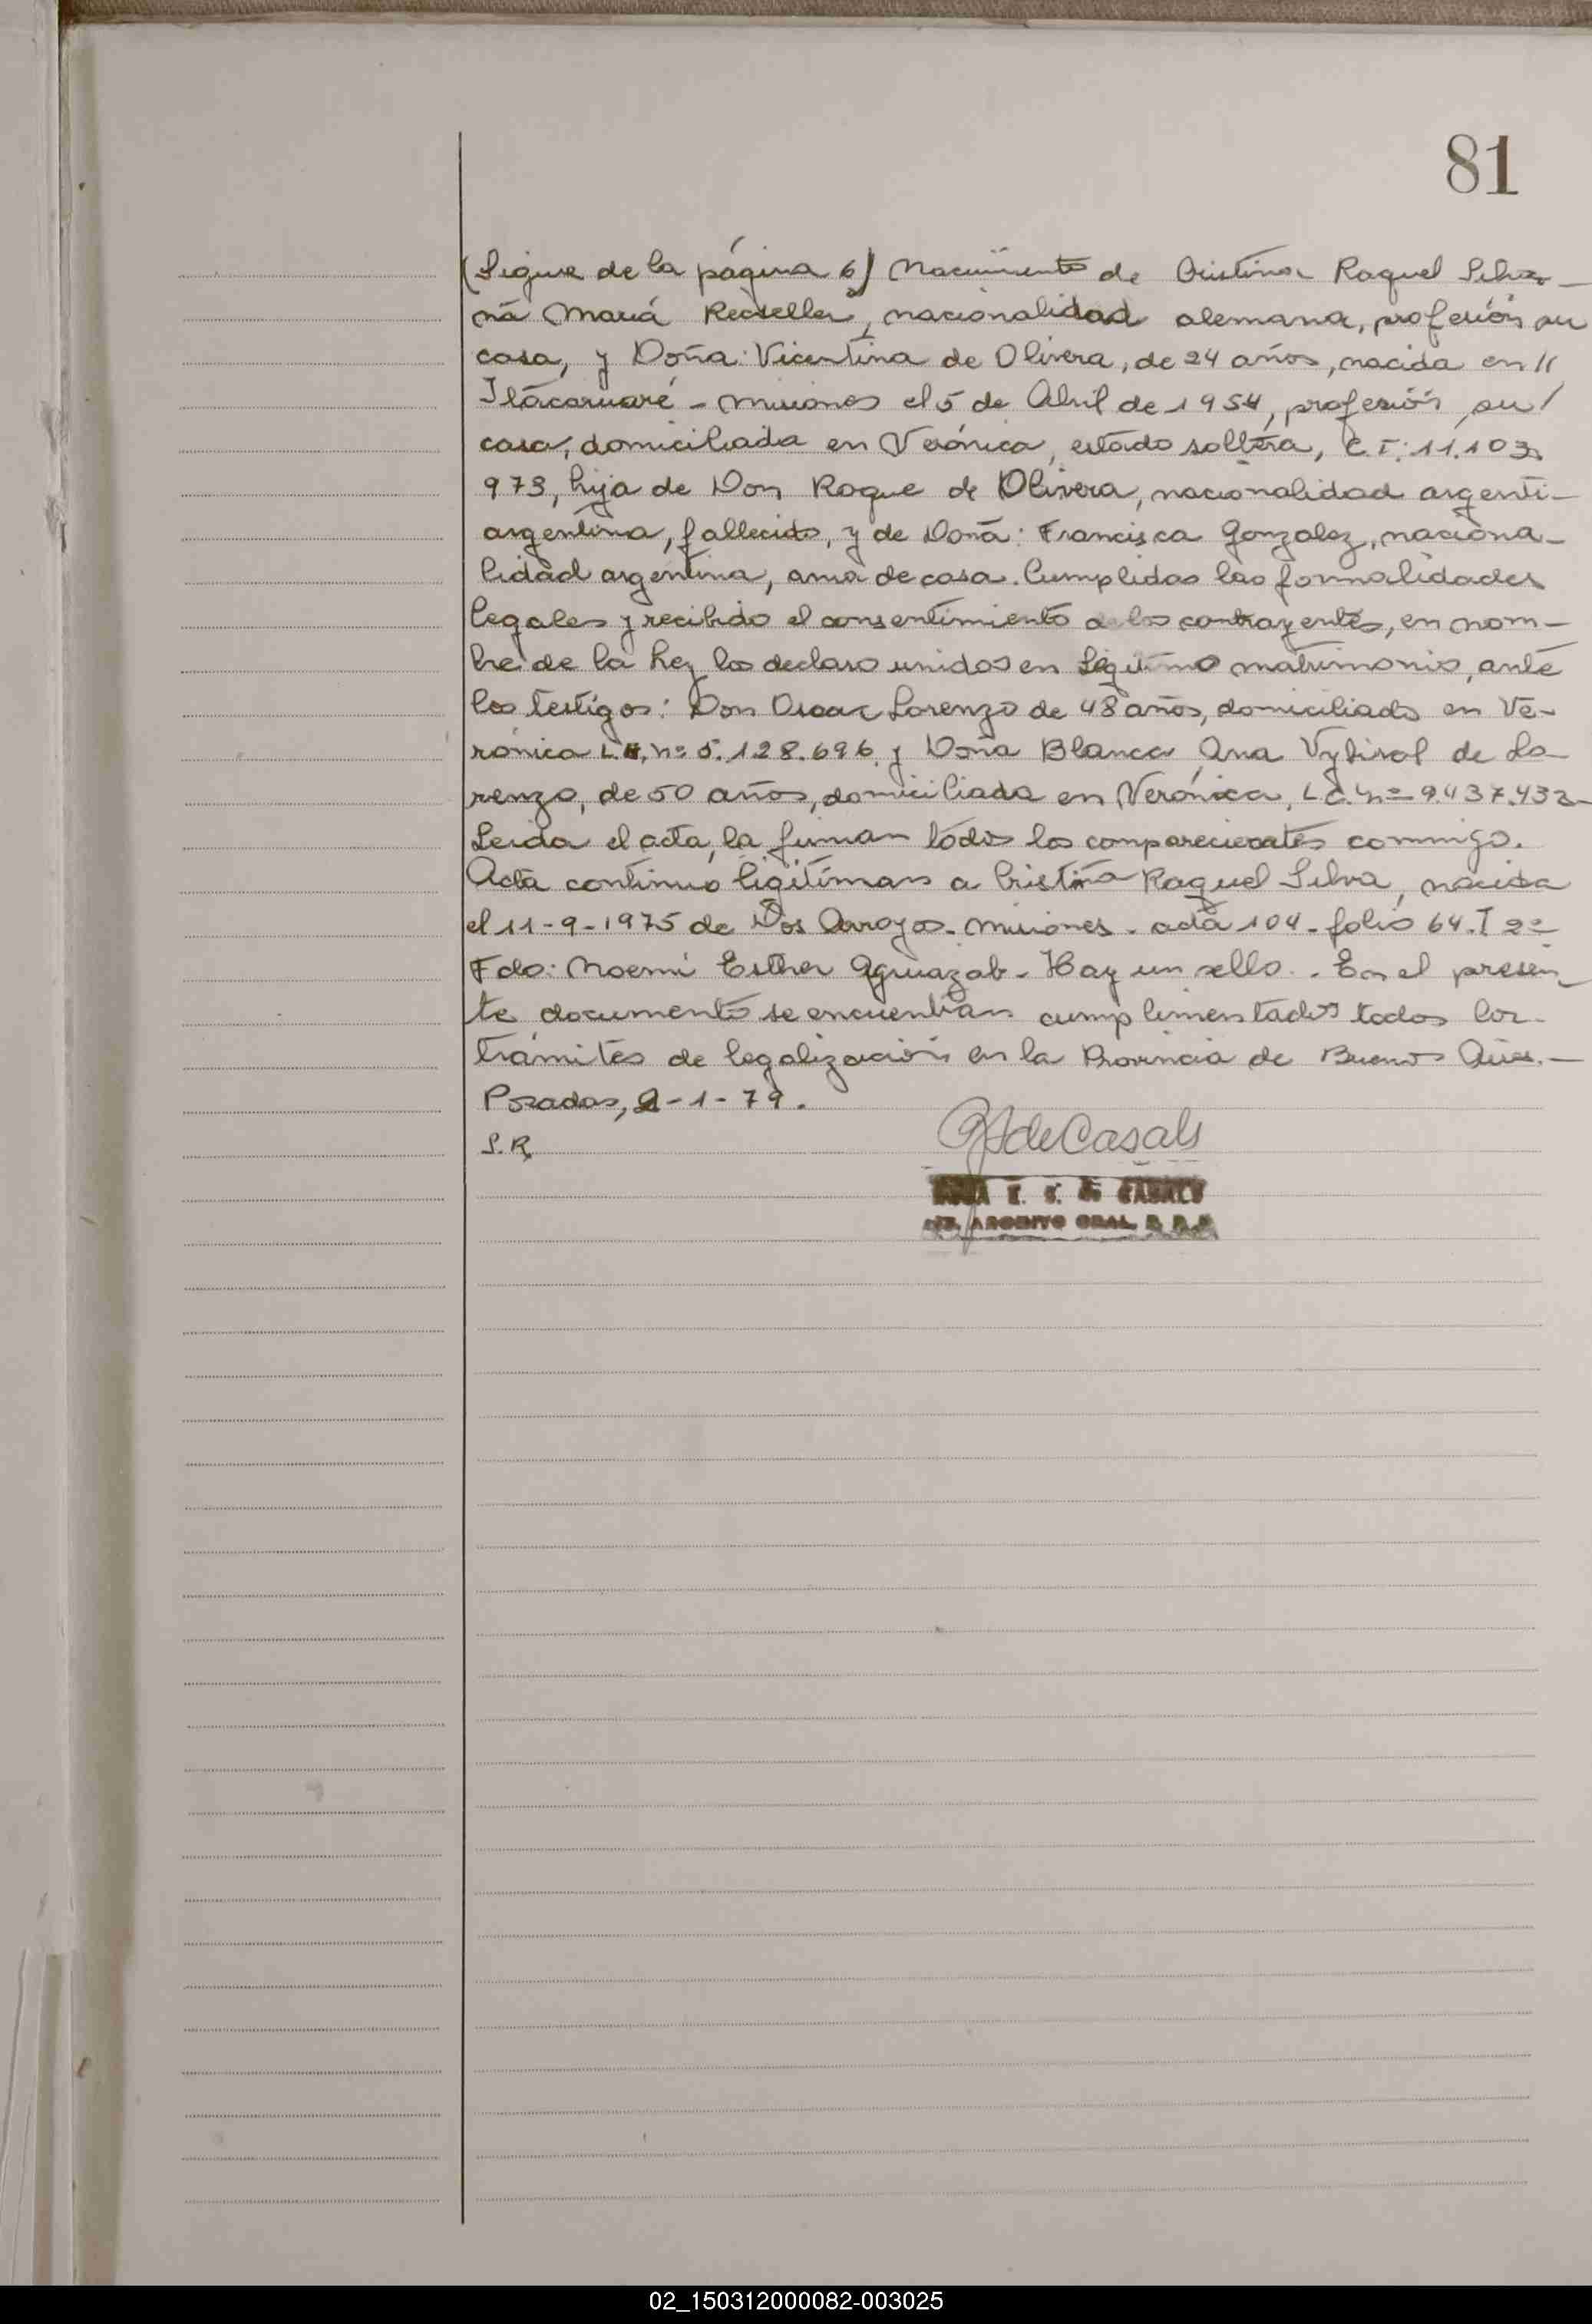 81
(Sigue de la página 6) Nacimiento de Cristina Raquel Silva -
ná María Recteller, nacionalidad alemana, profesión su
casa, y Doña: Vicentina de Olivera, de 24 años, nacida en //
Itácaruaré - Misiones el 5 de Abril de 1954, profesión su /
casa, domiciliada en Verónica, estado soltera, C.I: 11.103.
973, hija de Don Roque de Olivera, nacionalidad argenti-
argentina, fallecido, y de Doña: Francisca Gonzalez, naciona-
lidad argentina, ama de casa. Cumplidas las formalidades
legales y recibido el consentimiento de los contrayentes, en nom-
bre de la Ley los declaro unidos en Legítimo matrimonio, ante
los testigos: Don Oscar Lorenzo de 48 años, domiciliado en Ve-
rónica L.E. nº 5.128.696 y Doña Blanca Ana de Lo-
renzo, de 50 años, domiciliada en Verónica, L.C. nº 9.437.432-
Leida el acta, la firman todos los comparecientes conmigo.
Acta continuo ligitiman a Cristina Raquel Silva, nacida
el 11-9-1975 de Dos Arroyos - Misiones - acta 104 - folio 64. T 2º
Fdo: Noemi Esther - Hay un sello. - En el presen-
te documento se encuentran cumplimentados todos los -
trámites de legalización en la Provincia de Buenos Aires. -
Posadas, 2-1-79.
S.R.
de Casals
E. S. de CASALS
ARCHIVO GRAL. R. P.
02_150312000082-003025